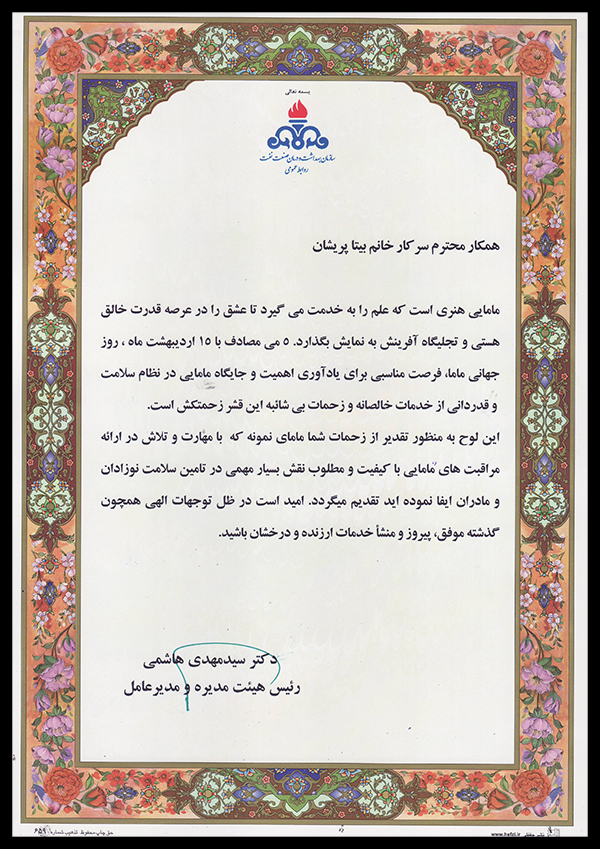 بسمه تعالی
سازمان بهداشت و درمان صنعت نفت
روابط عمومی
همکار محترم سرکار خانم بیتا پریشان
مامایی هنری است که علم را به خدمت می گیرد تا عشق را در عرصه قدرت خالق
هستی و تجلیگاه آفرینش به نمایش بگذارد. ۵ می مصادف با ۱۵ اردیبهشت ماه ، روز
جهانی ماما، فرصت مناسبی برای یادآوری اهمیت و جایگاه مامایی در نظام سلامت
و قدردانی از خدمات خالصانه و زحمات بی شائبه این قشر زحمتکش است.
این لوح به منظور تقدیر از زحمات شما مامای نمونه که با مهارت و تلاش در ارائه
مراقبت های مامایی با کیفیت و مطلوب نقش بسیار مهمی در تامین سلامت نوزادان
و مادران ایفا نموده اید تقدیم میگردد. امید است در ظل توجهات الهی همچون
گذشته موفق، پیروز و منشأ خدمات ارزنده و درخشان باشید.
دکتر سیدمهدی هاشمی
رئیس هیئت مدیره و مدیرعامل
حق چاپ محفوظ تذهیب شماره ۶۵۹
www.hafzi.ir